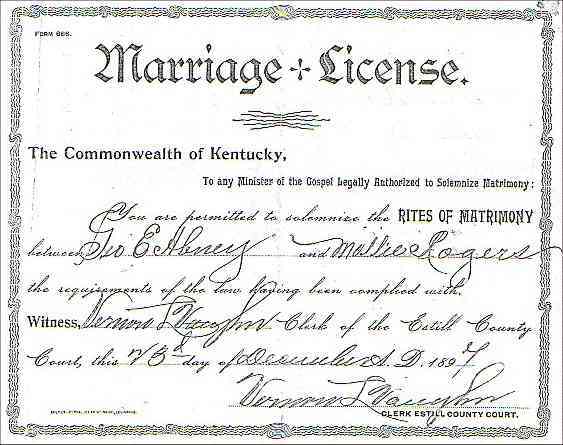 FORM 666.
Marriage + License.
The Commonwealth of Kentucky,
To any Minister of the Gospel Legally Authorized to Solemnize Matrimony:
You are permitted to solemnize the RITES OF MATRIMONY
between Geo E Abney and Mollie Rogers
the requisements of the law having been complied with.
Witness, Vernon L Vaughn Clerk of the Estill County
Court, this 23d day of December A. D. 1897
Vernon L Vaughn
CLERK ESTILL COUNTY COURT.